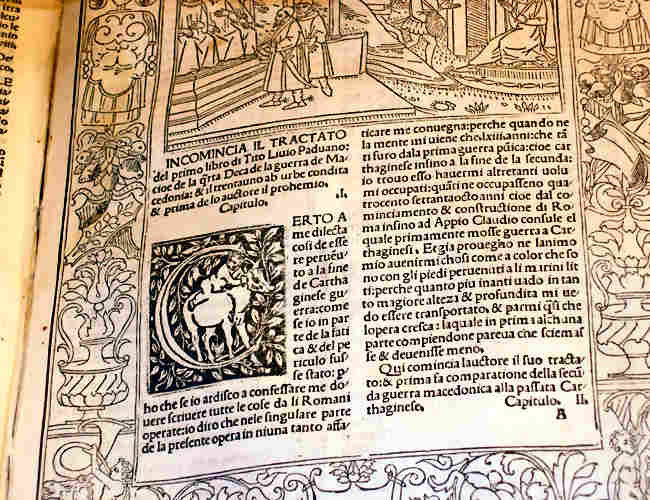 INCOMINCIA IL TRACTATO
del primo libro di Tito Liuio Paduano:
cioe de la q̃rta Deca de la guerra de Ma
cedonia: & il trentauno ab urbe condita
& prima de lo auctore il prohemio.
Capitulo. .I.
ERTO A
me dilecta
cosi de esse
re peruẽu
to a la fine
de Cartha
ginese gu
erra: come
se io in par
te de la fati
ca & del pe
riculo fus
se stato: p̃
ho che se io ardisco a confessare me do
uere scriuere tutte le cose da li Romani
operate: io diro che nele singulare parte
de la presente opera in niuna tanto affa
ticare me conuegna: perche quando ne
la mente mi uiene che .lxiii. anni: che tã
ti furo da la prima guerra pũica: cioe car
thaginese insino a la fine de la secunda:
io trouo esso hauermi altretanti uolu
mi occupati: quãti ne occupasseno qua
trocento settantaocto anni cioe dal co
minciamento & constructione di Ro
ma insino ad Appio Claudio consule el
quale primamente mosse guerra a Car
thaginesi. Et gia proueggho ne lanimo
mio auenirmi chosi come a color che so
no con gli piedi peruenuti a li marini lit
ti: perche quanto piu inanti uado in tan
to magiore alteza & profundita mi ue
do essere transportato. & parmi q̃si che
lopera cresca: laquale in prima alchuna
parte compiendone parea che scemas
se & deuenisse meno.
Qui comincia lauctore il suo tracta
to: & prima fa comparatione della secũ
da guerra macedonica alla passata Car
thaginese. Capitulo. II.
A